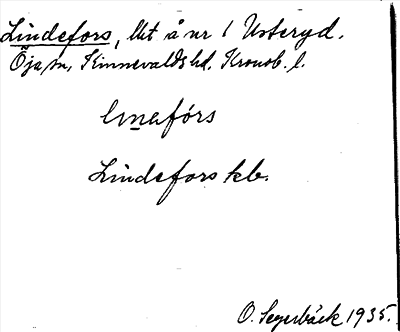 Lindefors, llt å nr 1 Usteryd.
Öja sn, Kinnevalds hd. Kronob. l.
linəfórs
Lindefors kb.
O. Segerbäck 1935.